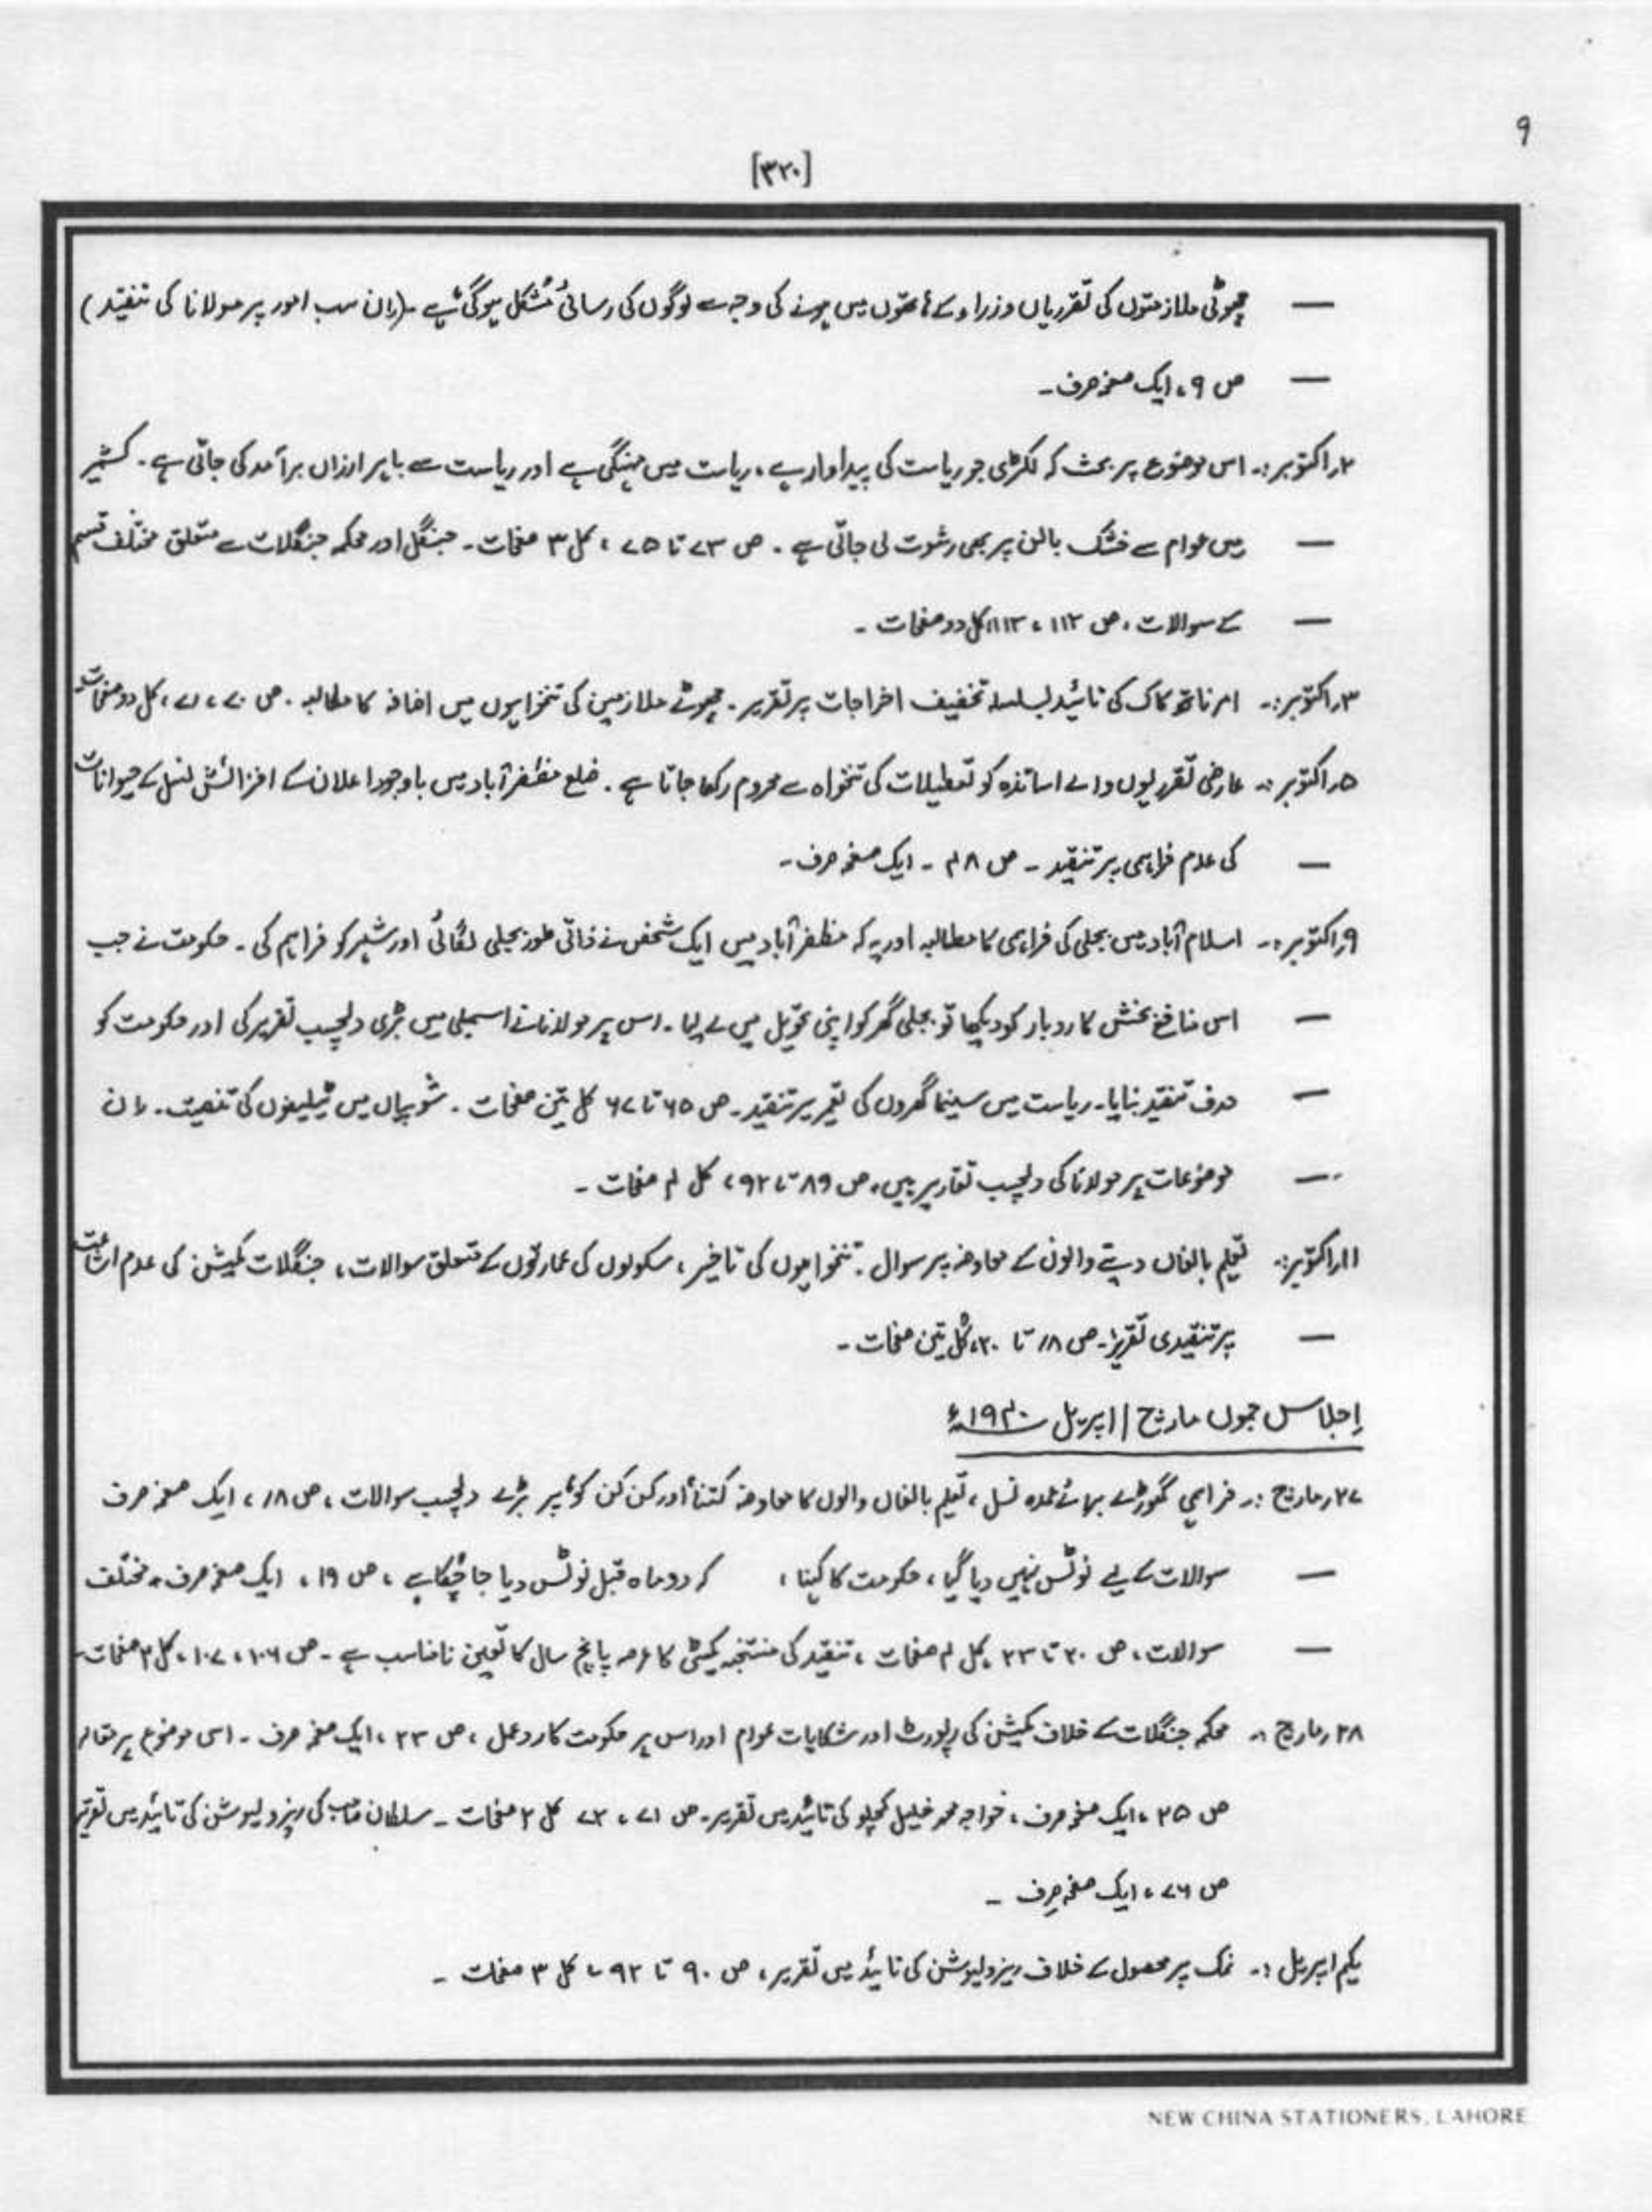 ۹
[۳۲۰]
— چھوٹی ملازمتوں کی تقرریاں وزراء کے ہاتھوں میں ہونے کی وجہ سے لوگوں کی رسائی مُشکل ہوگئی ہے ۔ (اِن سب امور پر مولانا کی تنقید)
— ص ۹، ایک صفحہ صرف۔
۲ر اکتوبر:۔ اس موضوع پر بحث کہ لکڑی جو ریاست کی پیداوار ہے، ریاست میں مہنگی ہے اور ریاست سے باہر ارزاں برآمد کی جاتی ہے۔ کشمیر
— میں عوام سے خشک بالن پر بھی رشوت لی جاتی ہے۔ ص ۷۳ تا ۷۵، کل ۳ صفحات۔ جنگل اور محکمہ جنگلات سے متعلق مختلف قسم
— کے سوالات، ص ۱۱۲، ۱۱۳، کل دو صفحات۔
۳ر اکتوبر:۔ امرناتھ کاک کی تائید بسلسلہ تخفیف اخراجات پر تقریر۔ چھوٹے ملازمین کی تنخواہوں میں اضافہ کا مطالبہ۔ ص ۷۰، ۷۱، کل دو صفحات۔
۵ر اکتوبر:۔ عارضی تقرریوں والے اساتذہ کو تعطیلات کی تنخواہ سے محروم رکھا جاتا ہے۔ ضلع مظفرآباد میں باوجود اعلان کے افزائش نسل کے حیوانات
— کی عدم فراہمی پر تنقید۔ ص ۴۸۔ ایک صفحہ صرف۔
۹ر اکتوبر:۔ اسلام آباد میں بجلی کی فراہمی کا مطالبہ اور یہ کہ مظفرآباد میں ایک شخص نے ذاتی طور بجلی لگائی اور شہر کو فراہم کی۔ حکومت نے جب
— اس منافع بخش کاروبار کو دیکھا تو بجلی گھر کو اپنی تحویل میں لے لیا۔ اس پر مولانا نے اسمبلی میں بڑی دلچسپ تقریر کی اور حکومت کو
— ہدف تنقید بنایا۔ ریاست میں سینما گھروں کی تعمیر پر تنقید۔ ص ۶۵ تا ۶۷ کل تین صفحات۔ شوپیاں میں ٹیلیفون کی تنصیب۔ اِن
— موضوعات پر مولانا کی دلچسپ تقاریر ہیں، ص ۸۹ تا ۹۲، کل ۴ صفحات۔
۱۱ر اکتوبر:۔ تعلیم بالغاں دینے والوں کے معاوضہ پر سوال۔ تنخواہوں کی تاخیر، سکولوں کی عمارتوں کے متعلق سوالات، جنگلات کمیشن کی عدم اشاعت
— پر تنقیدی تقریر۔ ص ۱۸ تا ۲۰، کُل تین صفحات۔
اِجلاس جموں مارچ / اپریل ۱۹۴۰ء
۲۷ر مارچ:۔ فراہمی گھوڑے برائے عمدہ نسل، تعلیم بالغاں والوں کا معاوضہ کتنا اور کن کن کو، پر بڑے دلچسپ سوالات، ص ۱۸، ایک صفحہ صرف
— سوالات کے لیے نوٹس نہیں دیا گیا، حکومت کا کہنا، کہ دو ماہ قبل نوٹس دیا جا چُکا ہے، ص ۱۹، ایک صفحہ صرف، مختلف
— سوالات، ص ۲۰ تا ۲۳، کل ۴ صفحات، تنقید کی منتخبہ کمیٹی کا عرصہ پانچ سال کا تعین نامناسب ہے۔ ص ۱۰۶، ۱۰۷، کل ۲ صفحات۔
۲۸ر مارچ:۔ محکمہ جنگلات کے خلاف کمیشن کی رپورٹ اور شکایات عوام اور اس پر حکومت کا ردعمل، ص ۲۳، ایک صفحہ صرف۔ اسی موضوع پر مقالہ
ص ۲۵، ایک صفحہ صرف، خواجہ محمد خلیل کچلو کی تائید میں تقریر۔ ص ۷۱، ۷۲ کل ۲ صفحات۔ سلطان صاحب کی ریزولیوشن کی تائید میں تقریر
ص ۷۶، ایک صفحہ صرف۔
یکم اپریل:۔ نمک پر محصول کے خلاف ریزولیوشن کی تائید میں تقریر، ص ۹۰ تا ۹۲، کل ۳ صفحات۔
NEW CHINA STATIONERS, LAHORE